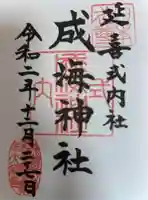 延喜式内社
成海神社
令和二年十二月二七日